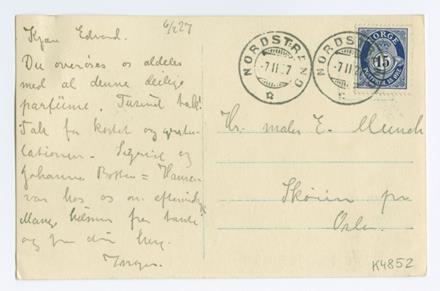 6/2 27
Kjære Edvard.
Du overøses jo aldeles
med al denne deilige
parfume. Tusind takk!
Tak for kortet og gratu-
lationen. Sigurd og
Johanne Botten = Hansen
var hos os om eftermidg
Mange hilsner fra tante
og fra din heng.
Inger.
NORDSTRAND
-7 II 27
NORDSTRAND
-7 II 27
NORGE
15
Hr. maler E. Munch
Skøien pr
Oslo.
K4852